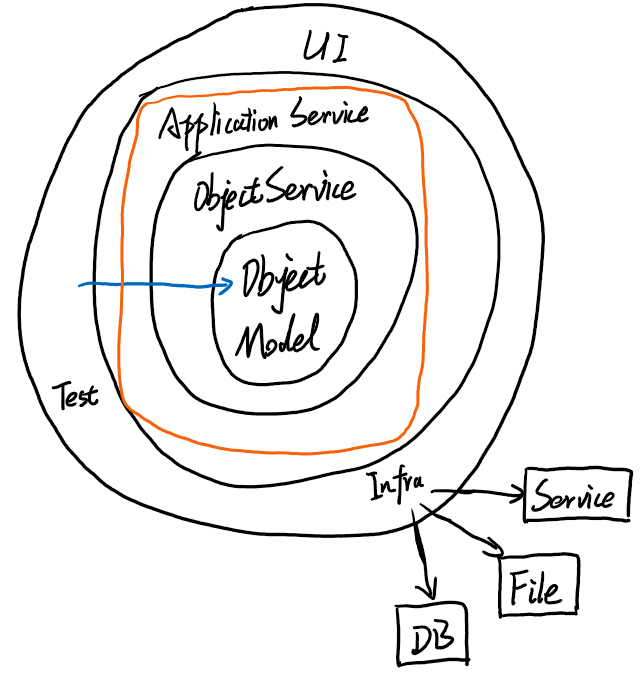 UI
Application Service
Object Service
Object
Model
Test
Infra
Service
File
DB